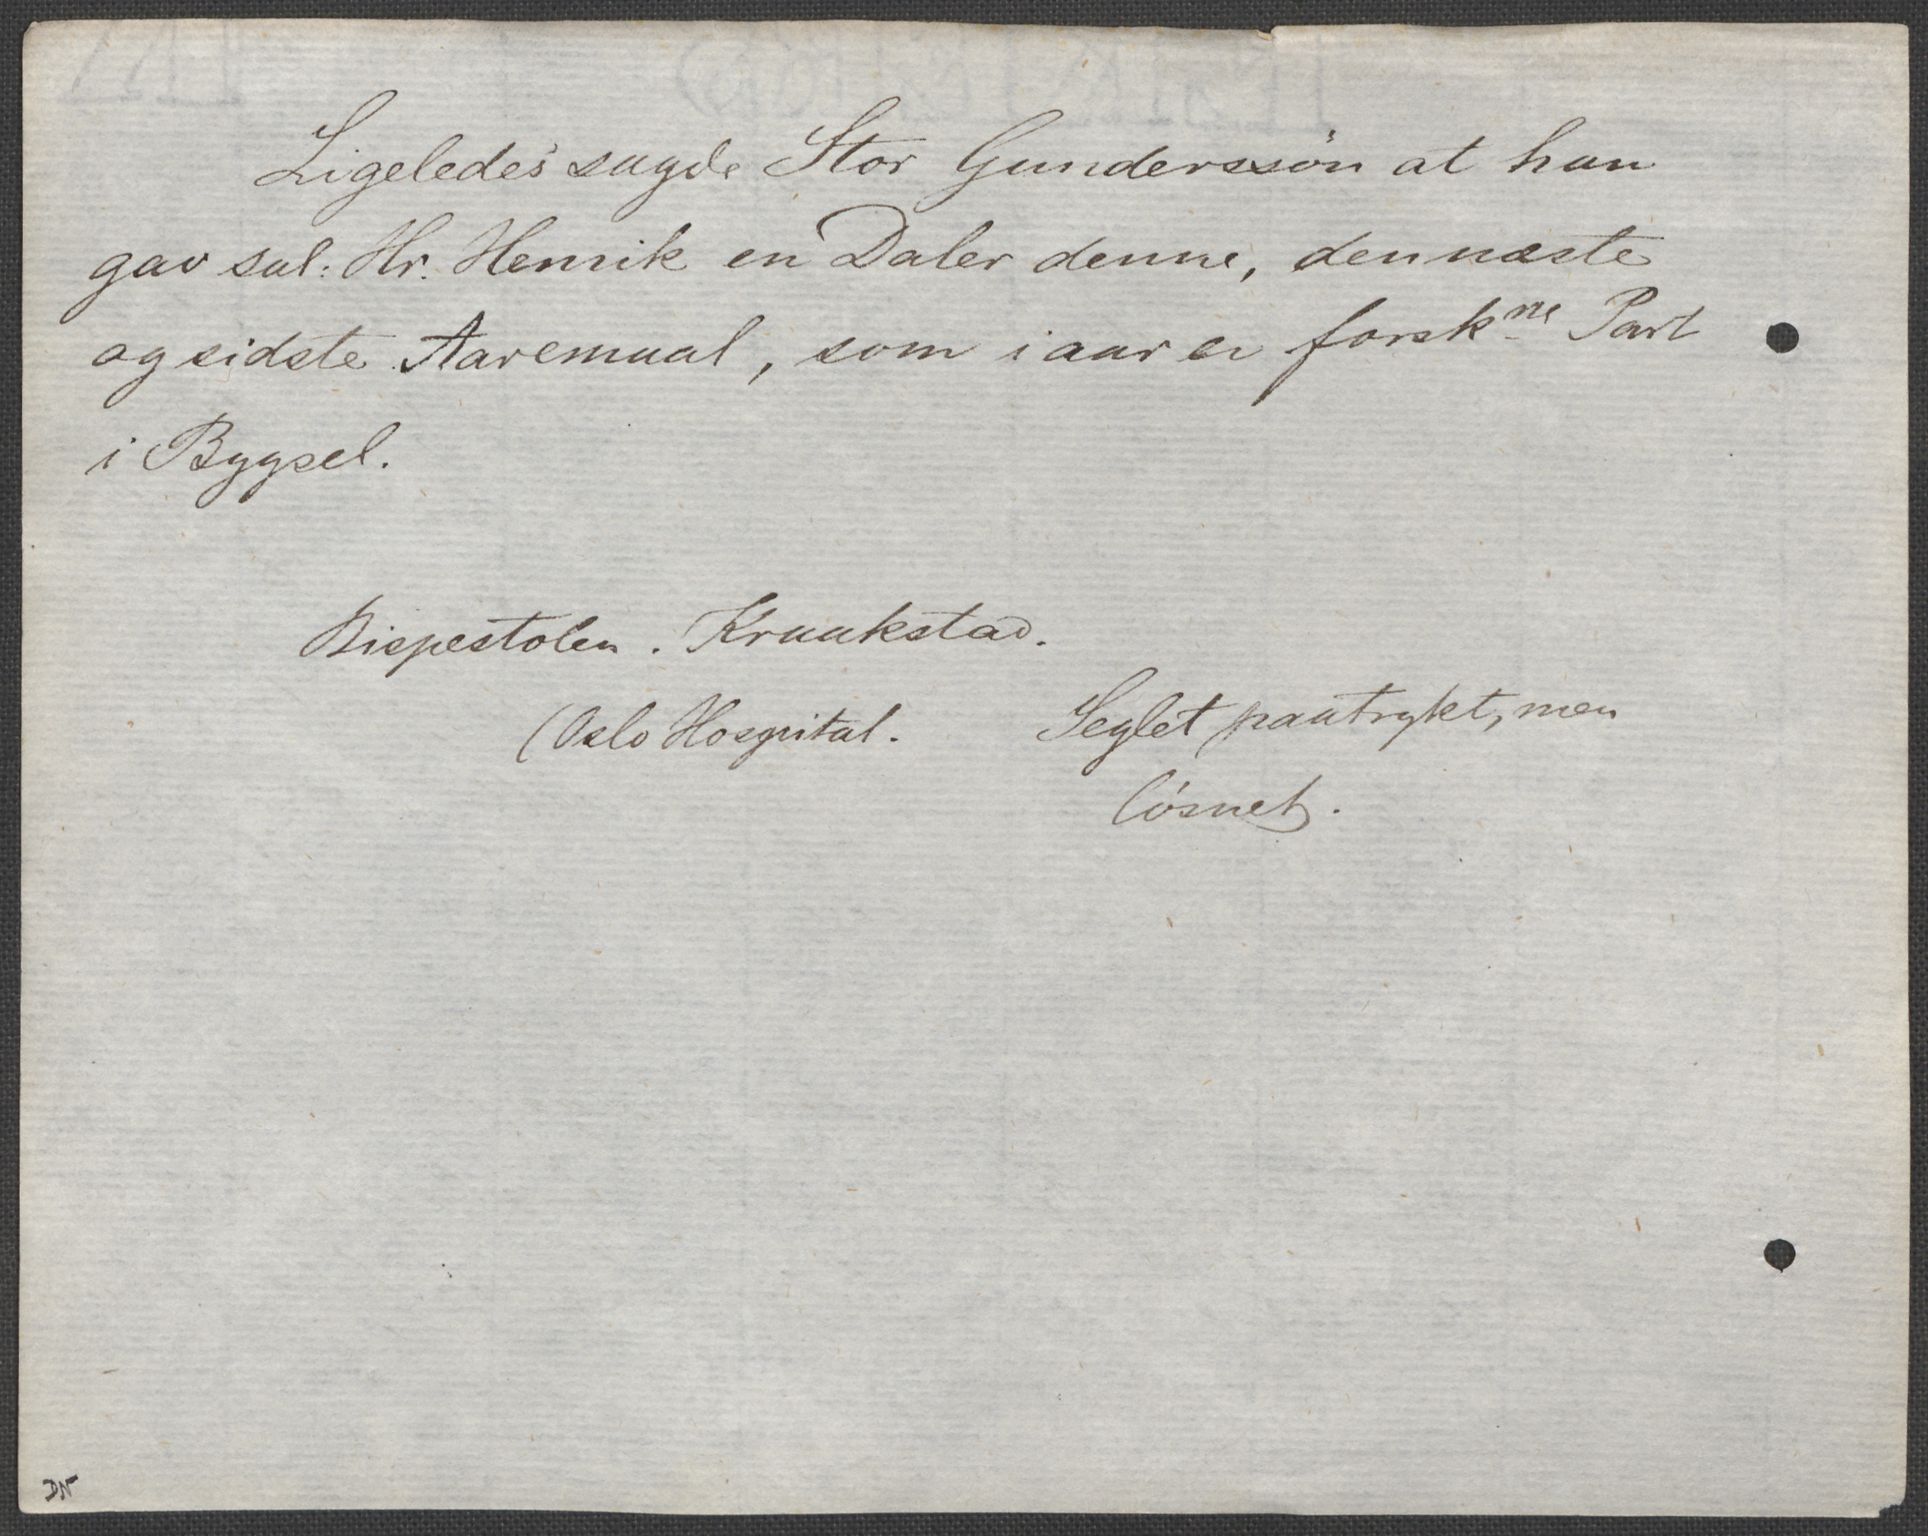 Ligeledes sagde Stor Gunderssön at han
gav sal: Hr. Henrik en Daler denne, den næste
og sidste Aaremaal, som i aar er forsk<sup>ne</sup> Part
i Bygsel.
Bispestolen. Kraakstad.
(Oslo Hospital.
Seglet paatrykt, men
løsnet.
DN